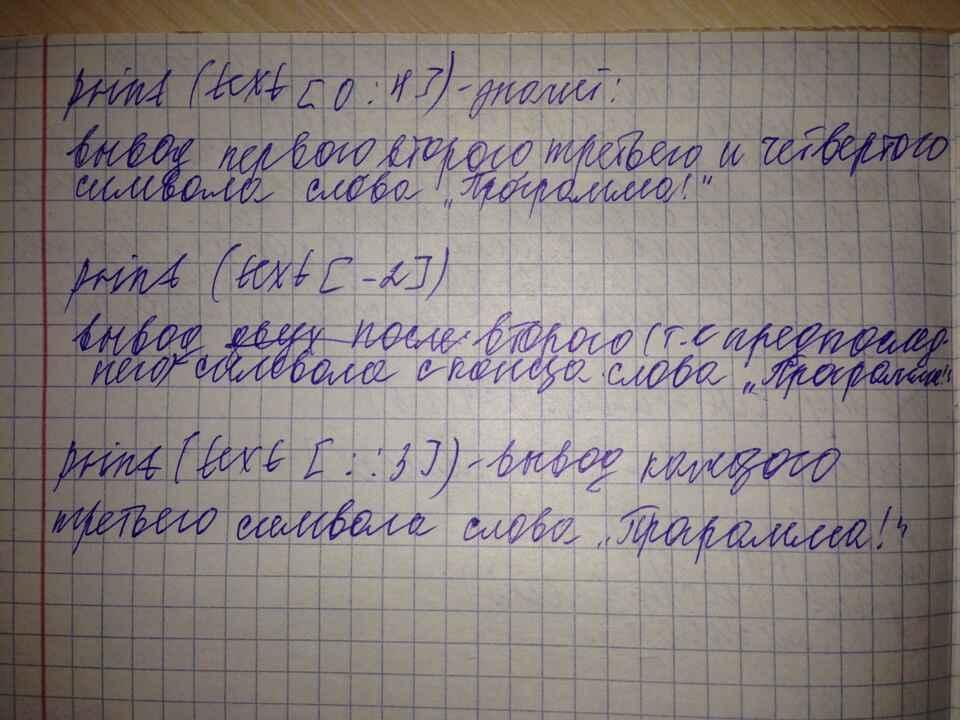 print (text [0:4]) - значит:
вывод первого второго третьего и четвертого
символа слова „Программа!"
print (text [-2])
вывод двух после второго (т.е предпослед-
него) символа с конца слова „Программа!"
print (text [::3]) - вывод каждого
третьего символа слова „Программа!"